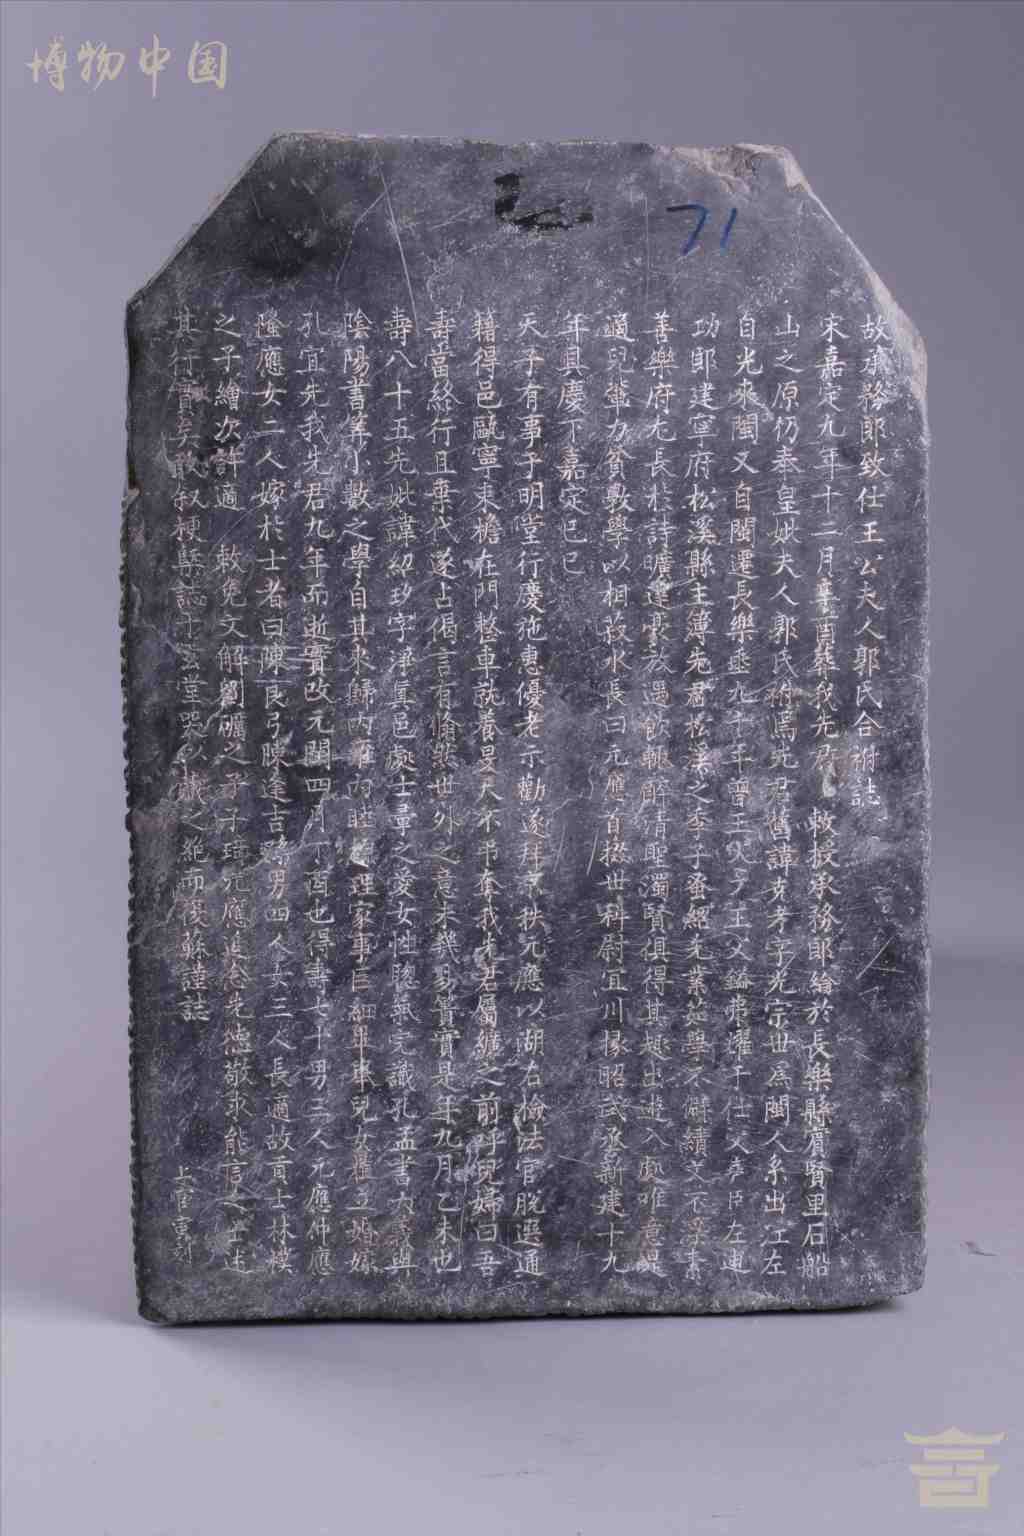 博物中国
71
故承務郎致仕王公夫人郭氏合祔誌
宋嘉定九年十二月辛酉葬我先君 敕授承務郎繪於長樂縣賓賢里石船
山之原仍奉皇妣夫人郭氏祔焉先君舊諱克孝字光宗世爲閩人系出江左
自光來閩又自閩遷長樂垂九十年曾王父 王父鎰弗耀于仕父 臣左迪
功郎建寧府松溪縣主簿先君松溪之季子蚤紹先業茹學不懈績文不 素
善樂府尤長於詩曠達豪放遇飲輒醉清聖濁賢俱得其趣出遊入處唯意是
適兒輩力貧教學以相菽水長曰元應首掇世科尉宜川椽昭武丞新建十九
年眞慶下嘉定己巳
天子有事于明堂行慶施惠優老示勸遂拜京秩元應以湖右檢法官脫選通
籍得邑甌寧束檐在門整車就養旻天不弔奪我先君屬纊之前呼兒婦曰吾
壽當終行且棄代遂占偈言有翛然世外之意未幾易簀實是年九月乙未也
壽八十五先妣諱 字淨眞邑處士 之愛女性聰氣完識孔孟書大義與
陰陽書筭小數之學自其來歸內 內睦 理家事巨細畢舉兒女 立婚嫁
孔宜先我先君九年而逝實改元開四月丁酉也得壽七十男三人元應仲應
隆應女二人嫁於士者曰陳良弓陳逢吉孫男四人女三人長適故貢士林樸
之子繪次許適 敕免文解劉礪之子子 元應追念先德敬求能言之士述
其行實矣敢叙梗槩誌于玄堂哭以識之絶而復蘇謹誌
上官 刻